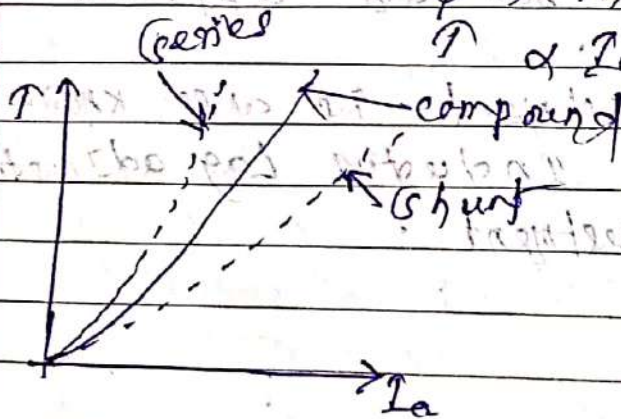 (series
T ∝ I
T
compound
(shunt
Ia